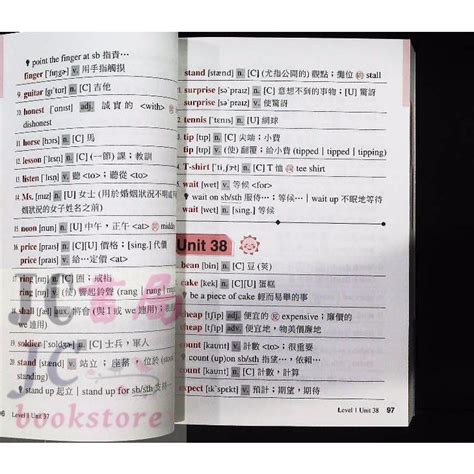 point the finger at sb 指責…
finger [ˈfɪŋgɚ] v. 用手指觸摸
9. guitar [gɪˈtɑr] n. [C] 吉他
honest [ˈɑnɪst] adj. 誠實的 <with>
dishonest
horse [hɔrs] n. [C] 馬
lesson [ˈlɛsn] n. [C] (一節) 課；教訓
listen [ˈlɪsn] v. 聽 <to>；聽從 <to>
Ms. [mɪz] n. [U] 女士 (用於婚姻狀況不明或
婚姻狀況的女子姓名之前)
noon [nun] n. [U] 中午，正午 <at>
price [praɪs] n. [C][U] 價格；[sing.] 代價
price [praɪs] v. 給…定價 <at>
ring [rɪŋ] n. [C] 圈；戒指
ring [rɪŋ] v. (使) 響起鈴聲 (rang | rung |
shall [ʃæl] aux. 將會 (與 I 或 we 連用)；
we 連用)
soldier [ˈsoldʒɚ] n. [C] 士兵，軍人
stand [stænd] v. 站立；座落，位於 (stood
standing)
stand up 起立 | stand up for sb/sth 支持…
Level 1 Unit 37
stand [stænd] n. [C] (尤指公開的) 觀點；攤位 同 stall
surprise [səˈpraɪz] n. [C] 意想不到的事物；[U] 驚訝
surprise [səˈpraɪz] v. 使驚訝
tennis [ˈtɛnɪs] n. [U] 網球
tip [tɪp] n. [C] 尖端；小費
tip [tɪp] v. (使) 傾斜；給小費 (tipped | tipped | tipping)
T-shirt [ˈtiˌʃɝt] n. [C] T 恤 同 tee shirt
wait [wet] v. 等候 <for>
wait on sb/sth 服侍…；等候… | wait up 不眠地等待
wait [wet] n. [sing.] 等候
Unit 38
bean [bin] n. [C] 豆 (莢)
cake [kek] n. [C][U] 蛋糕
be a piece of cake 輕而易舉的事
cheap [tʃip] adj. 便宜的 反 expensive；廉價的
cheap [tʃip] adv. 便宜地，物美價廉地
count [kaʊnt] v. 計數 <to>；很重要
count (up)on sb/sth 指望…，依賴…
count [kaʊnt] n. [C] 計算，計數
expect [ɪkˈspɛkt] v. 預計；期望，期待
Level 1 Unit 38 97
JC 書局
JC
bookstore